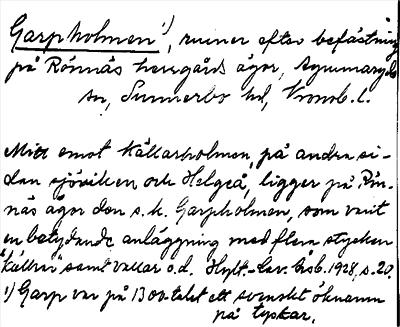 Garpholmen¹⁾, ruiner efter befästning
på Rönnäs herrgårds ägor, Agunnaryds
sn, Sunnerbo hd, Kronob. l.
Mitt emot Källarholmen, på andra si-
dan sjöviken och Helgeå, ligger på Rön-
näs ägor den s.k. Garpholmen, som varit
en betydande anläggning med flera stycken
"källrar" samt vallar o.d. Hylt.-Cav. Årsb. 1928, s. 20.
¹⁾ Garp var på 1300-talet ett svenskt öknamn
på tyskar.